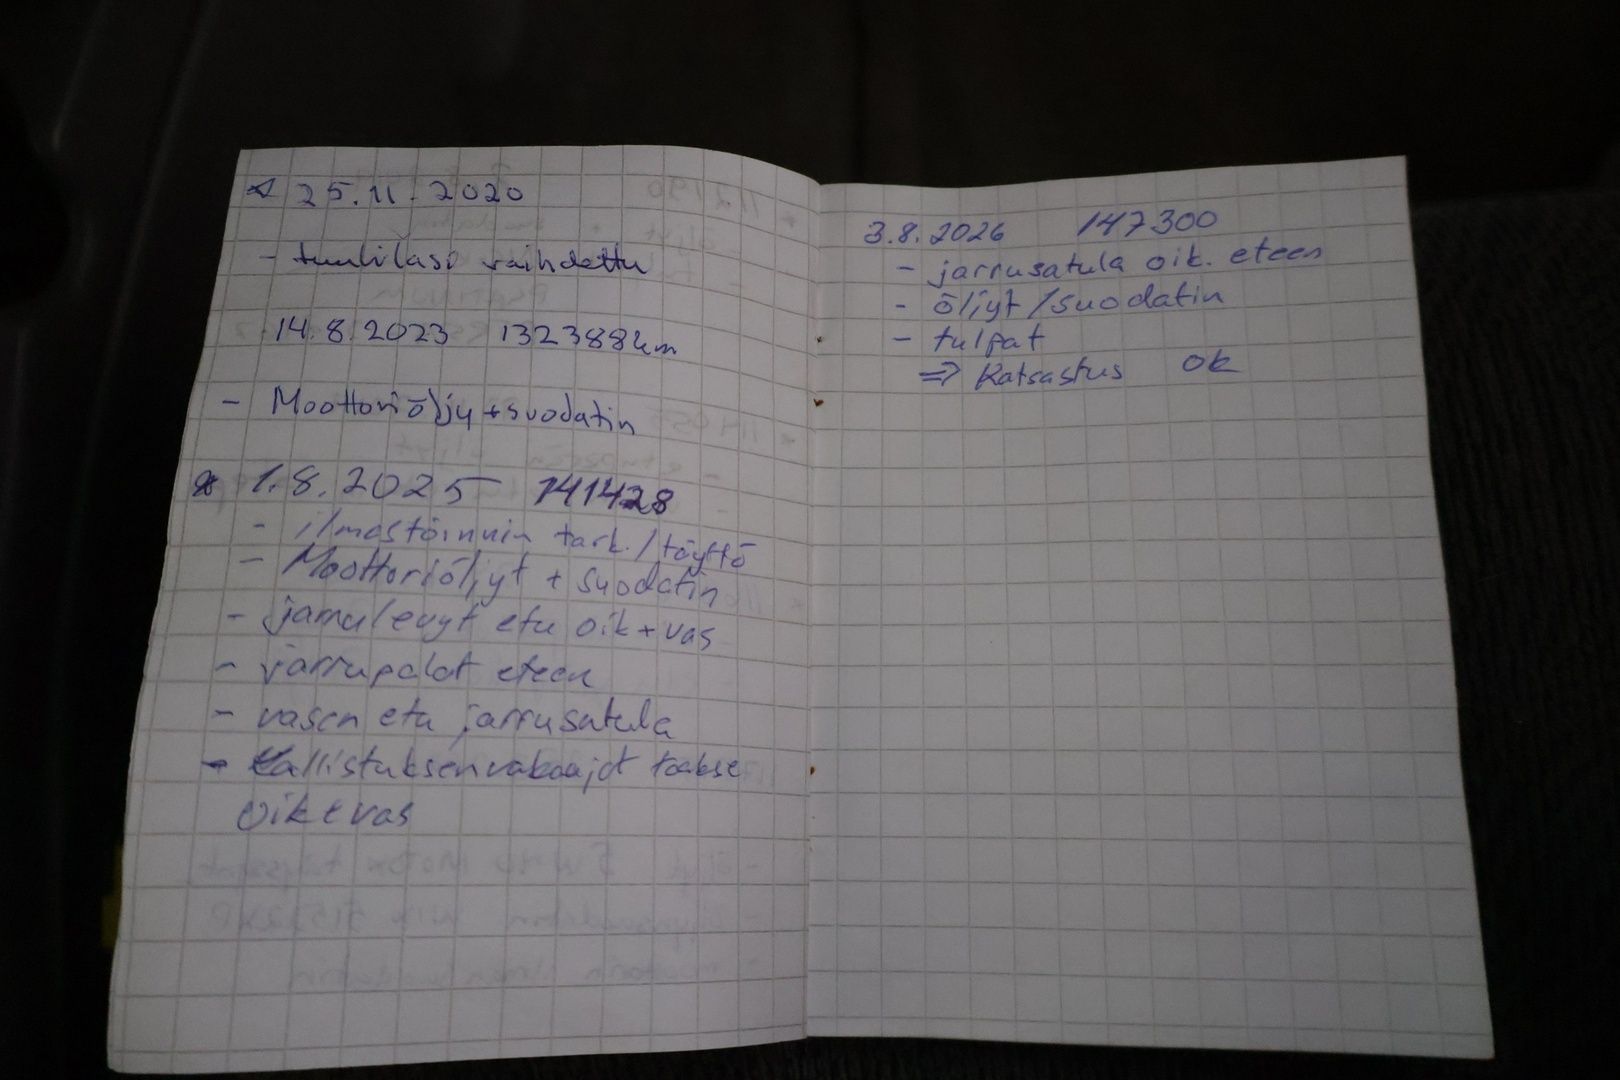 25.11.2020
- tuulilasi vaihdettu
14.8.2023 132388km
- Moottoriöljy + suodatin
* 1.8.2025 141428
- ilmastoinnin tark./täyttö
- Moottoriöljyt + suodatin
- jarrulevyt etu oik + vas
- jarrupalat eteen
- vasen etu jarrusatula
- kallistuksenvakaajat taakse
oik + vas
3.8.2026 147300
- jarrusatula oik. eteen
- öljyt/suodatin
- tulpat
⇒ Katsastus ok